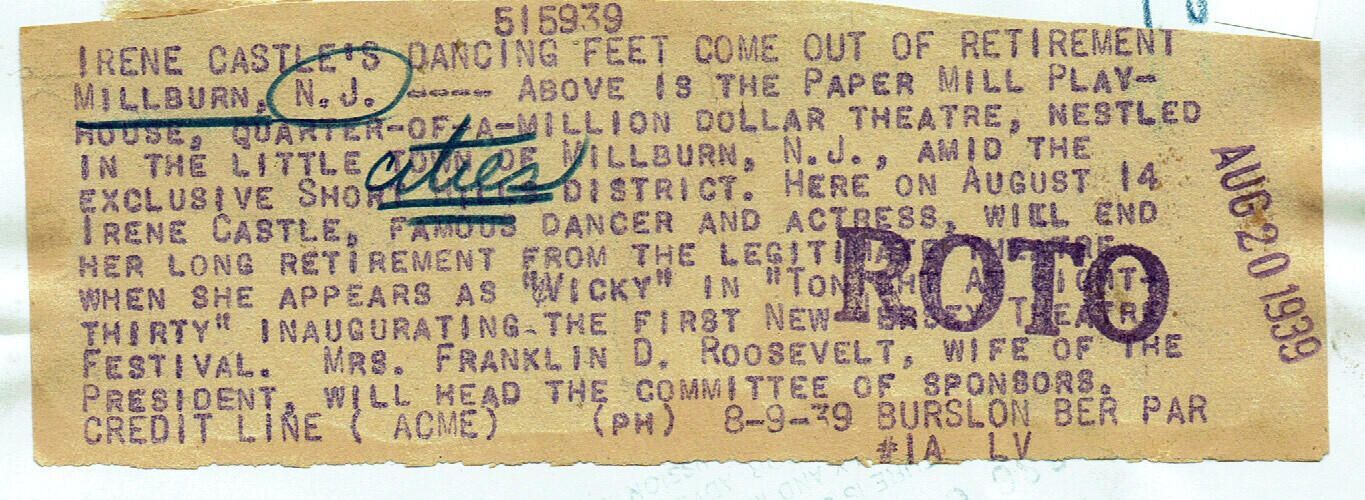 515939
IRENE CASTLE'S DANCING FEET COME OUT OF RETIREMENT
MILLBURN, N.J. ---- ABOVE IS THE PAPER MILL PLAY-
HOUSE, QUARTER-OF-A-MILLION DOLLAR THEATRE, NESTLED
IN THE LITTLE TOWN OF MILLBURN, N.J., AMID THE
cities
EXCLUSIVE SHORT HILLS DISTRICT. HERE ON AUGUST 14
IRENE CASTLE, FAMOUS DANCER AND ACTRESS, WILL END
HER LONG RETIREMENT FROM THE LEGITIMATE THEATRE
WHEN SHE APPEARS AS "WICKY" IN "TONIGHT AT EIGHT-
THIRTY" INAUGURATING THE FIRST NEW JERSEY THEATRE
FESTIVAL. MRS. FRANKLIN D. ROOSEVELT, WIFE OF THE
PRESIDENT, WILL HEAD THE COMMITTEE OF SPONSORS.
CREDIT LINE ( ACME) (PH) 8-9-39 BURSLON BER PAR
#1A LV
ROTO
AUG 20 1939